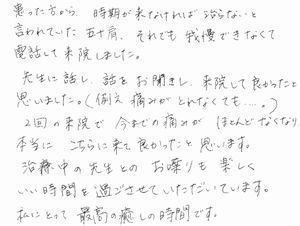 患った方から、時期が来なければ治らないと
言われていた五十肩、それでも我慢できなくて
電話して来院しました。
先生に話し、話をお聞きし、来院して良かったと
思いました。(例え痛みがとれなくても…。)
2回の来院で今までの痛みがほとんどなくなり
本当にこちらに来て良かったと思います。
治療中の先生とのお喋りも楽しく
いい時間を過ごさせていただいています。
私にとって最高の癒しの時間です。